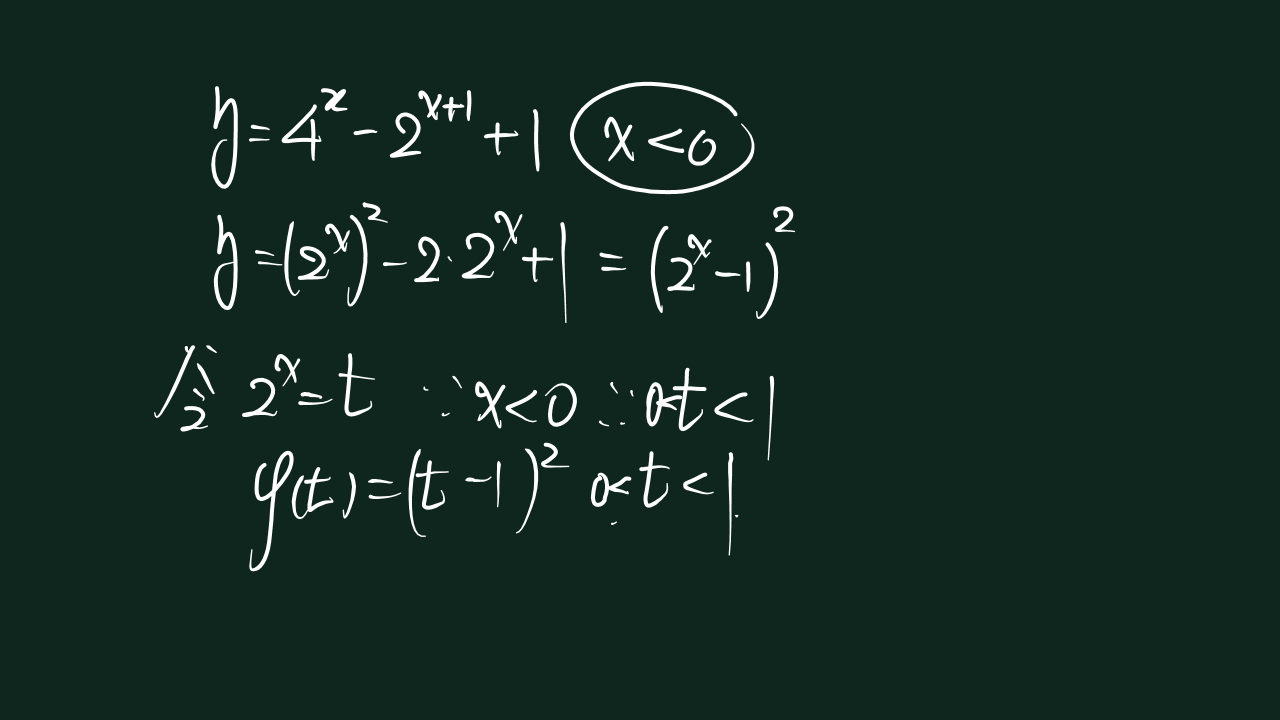 y=4^x-2^{x+1}+1 x<0
y=(2^x)^2-2·2^x+1=(2^x-1)^2
令 2^x=t ∵x<0 ∴0<t<1
φ(t)=(t-1)^2 0<t<1